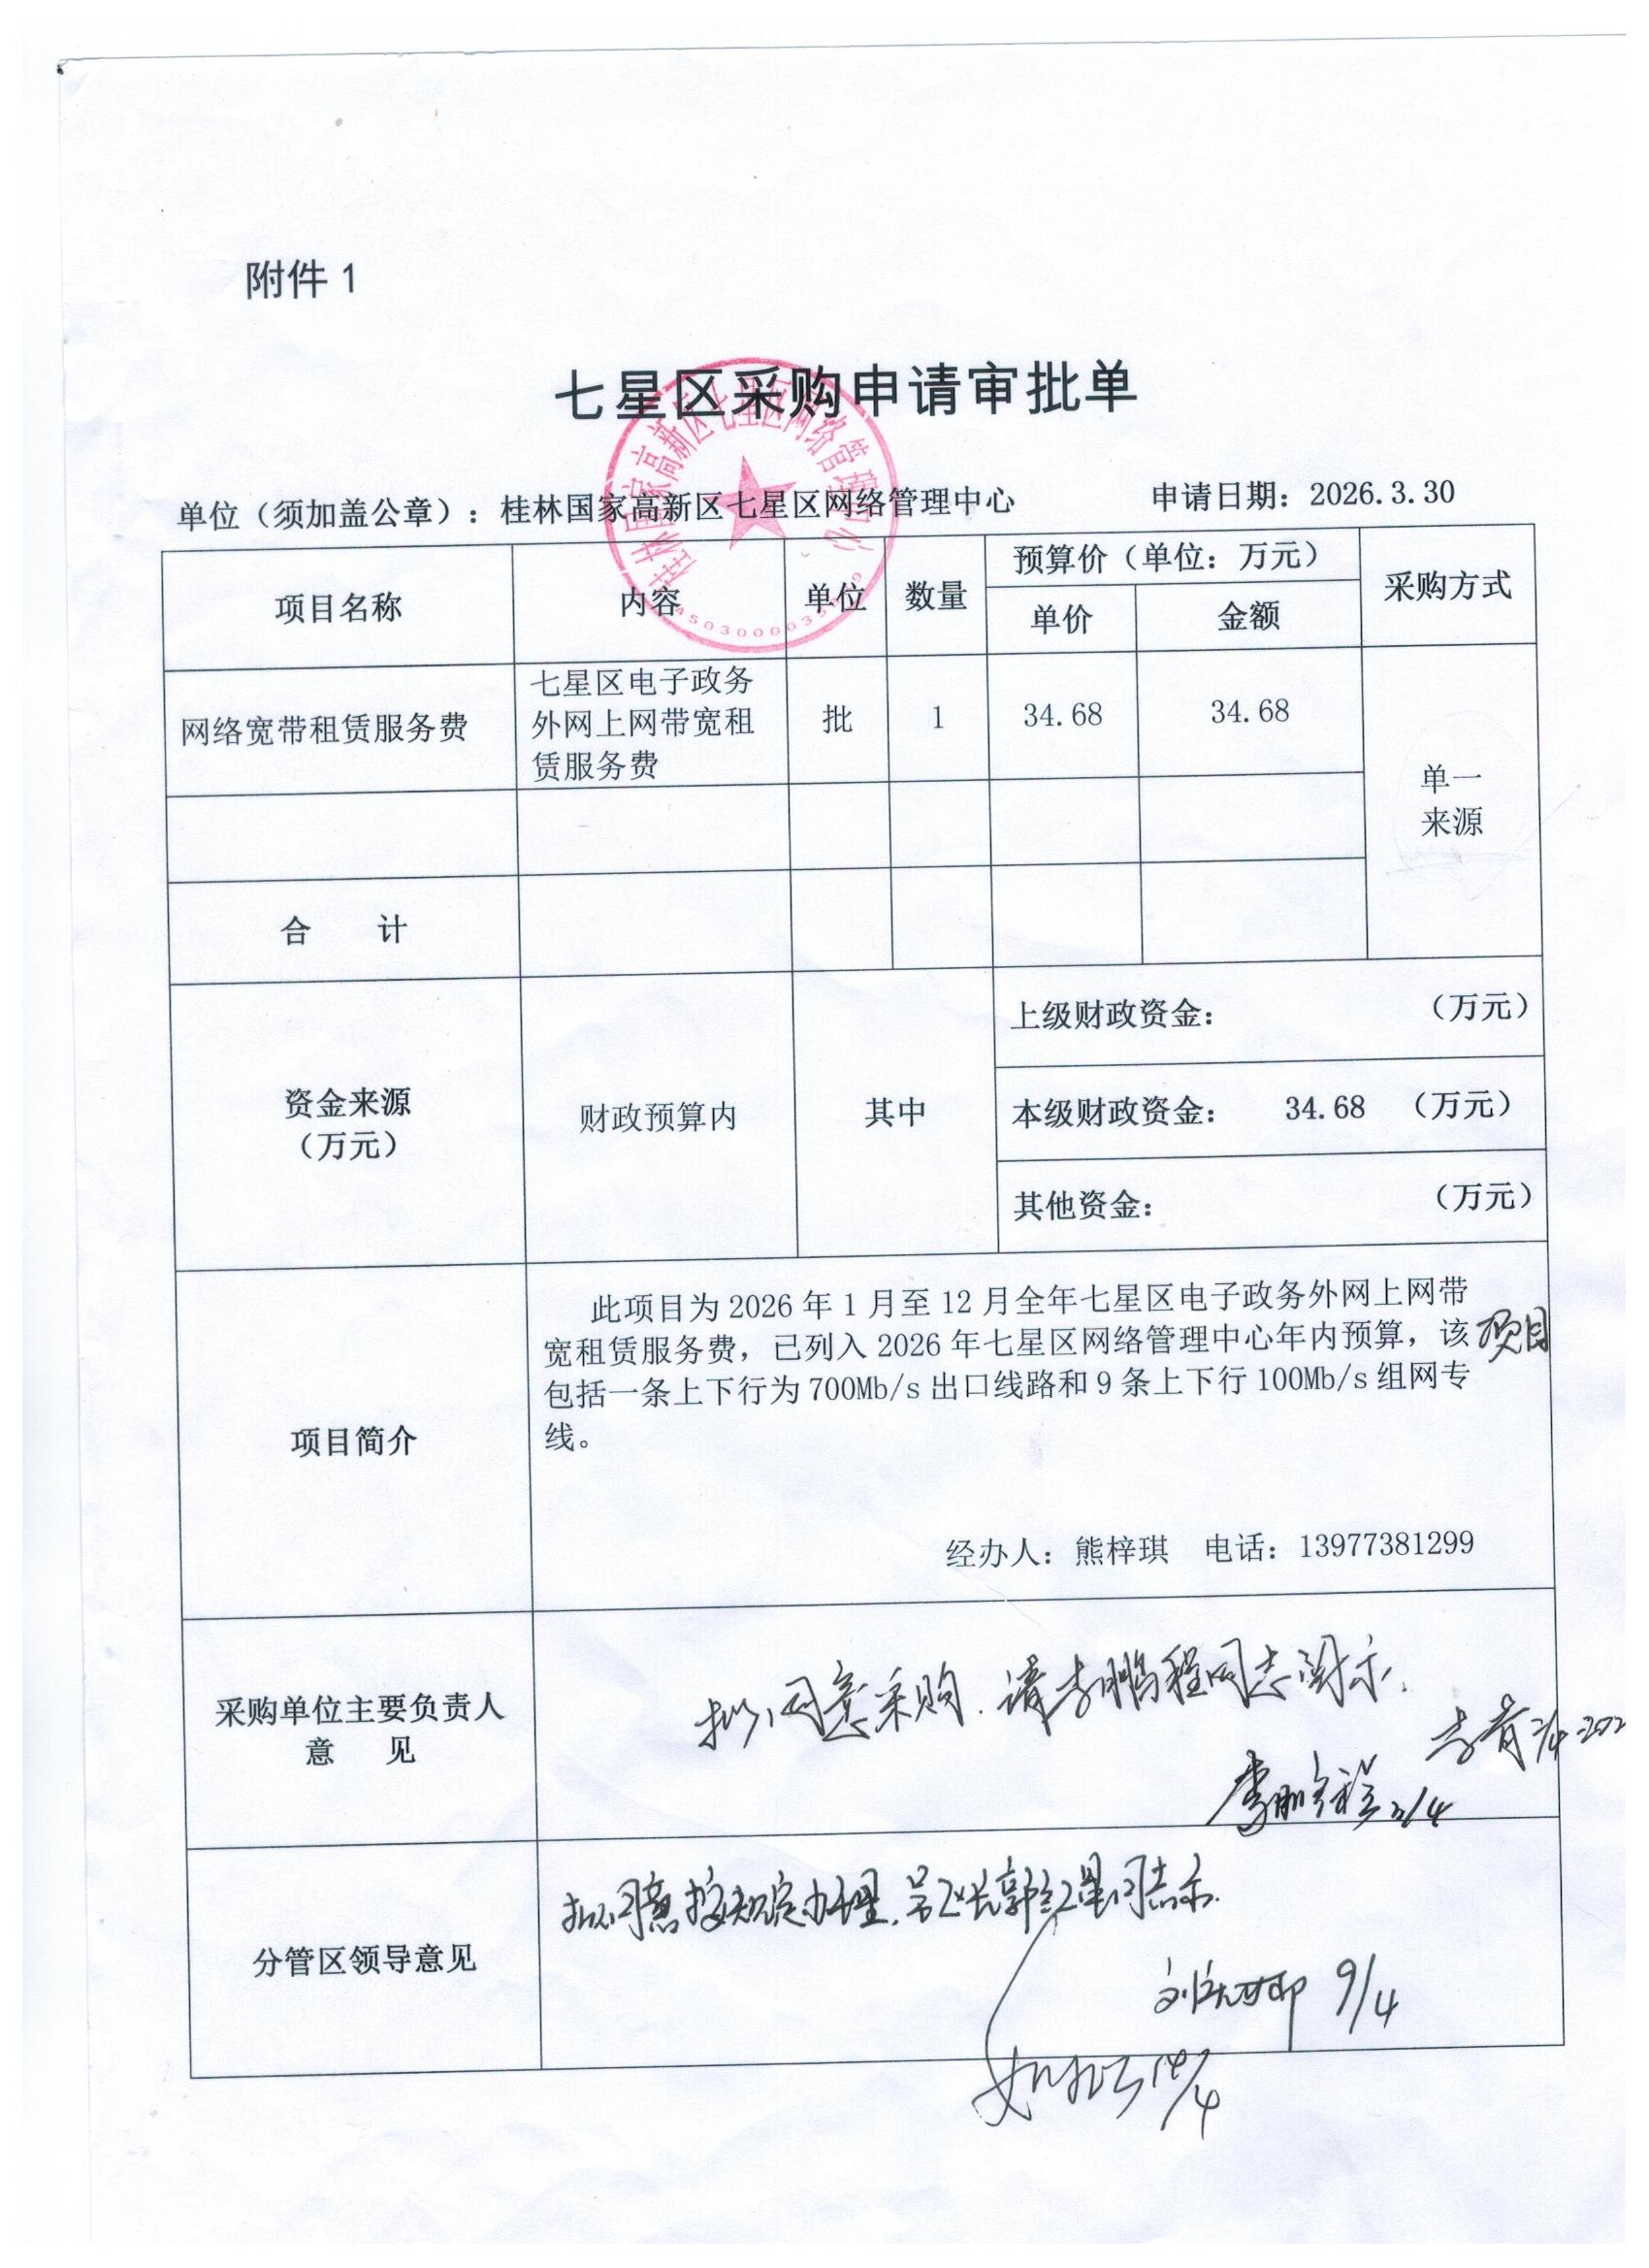 附件 1
七星区采购申请审批单
桂林国家高新区七星区网络管理中心
单位（须加盖公章）：桂林国家高新区七星区网络管理中心 申请日期：2026.3.30
项目名称 内容 单位 数量 预算价（单位：万元） 采购方式
单价 金额
网络宽带租赁服务费 七星区电子政务 批 1 34.68 34.68 单一
外网上网带宽租 来源
赁服务费
合 计
资金来源 财政预算内 其中 上级财政资金： （万元）
（万元） 本级财政资金： 34.68 （万元）
其他资金： （万元）
项目简介
此项目为 2026 年 1 月至 12 月全年七星区电子政务外网上网带
宽租赁服务费，已列入 2026 年七星区网络管理中心年内预算，该项目
包括一条上下行为 700Mb/s 出口线路和 9 条上下行 100Mb/s 组网专
线。
经办人：熊梓琪 电话：13977381299
采购单位主要负责人
意 见
拟同意采购．请李鹏程同志阅示．
李鹏程 2/4
分管区领导意见
拟同意按规定办理,呈区长郭红星同志示.
9/4
14/4